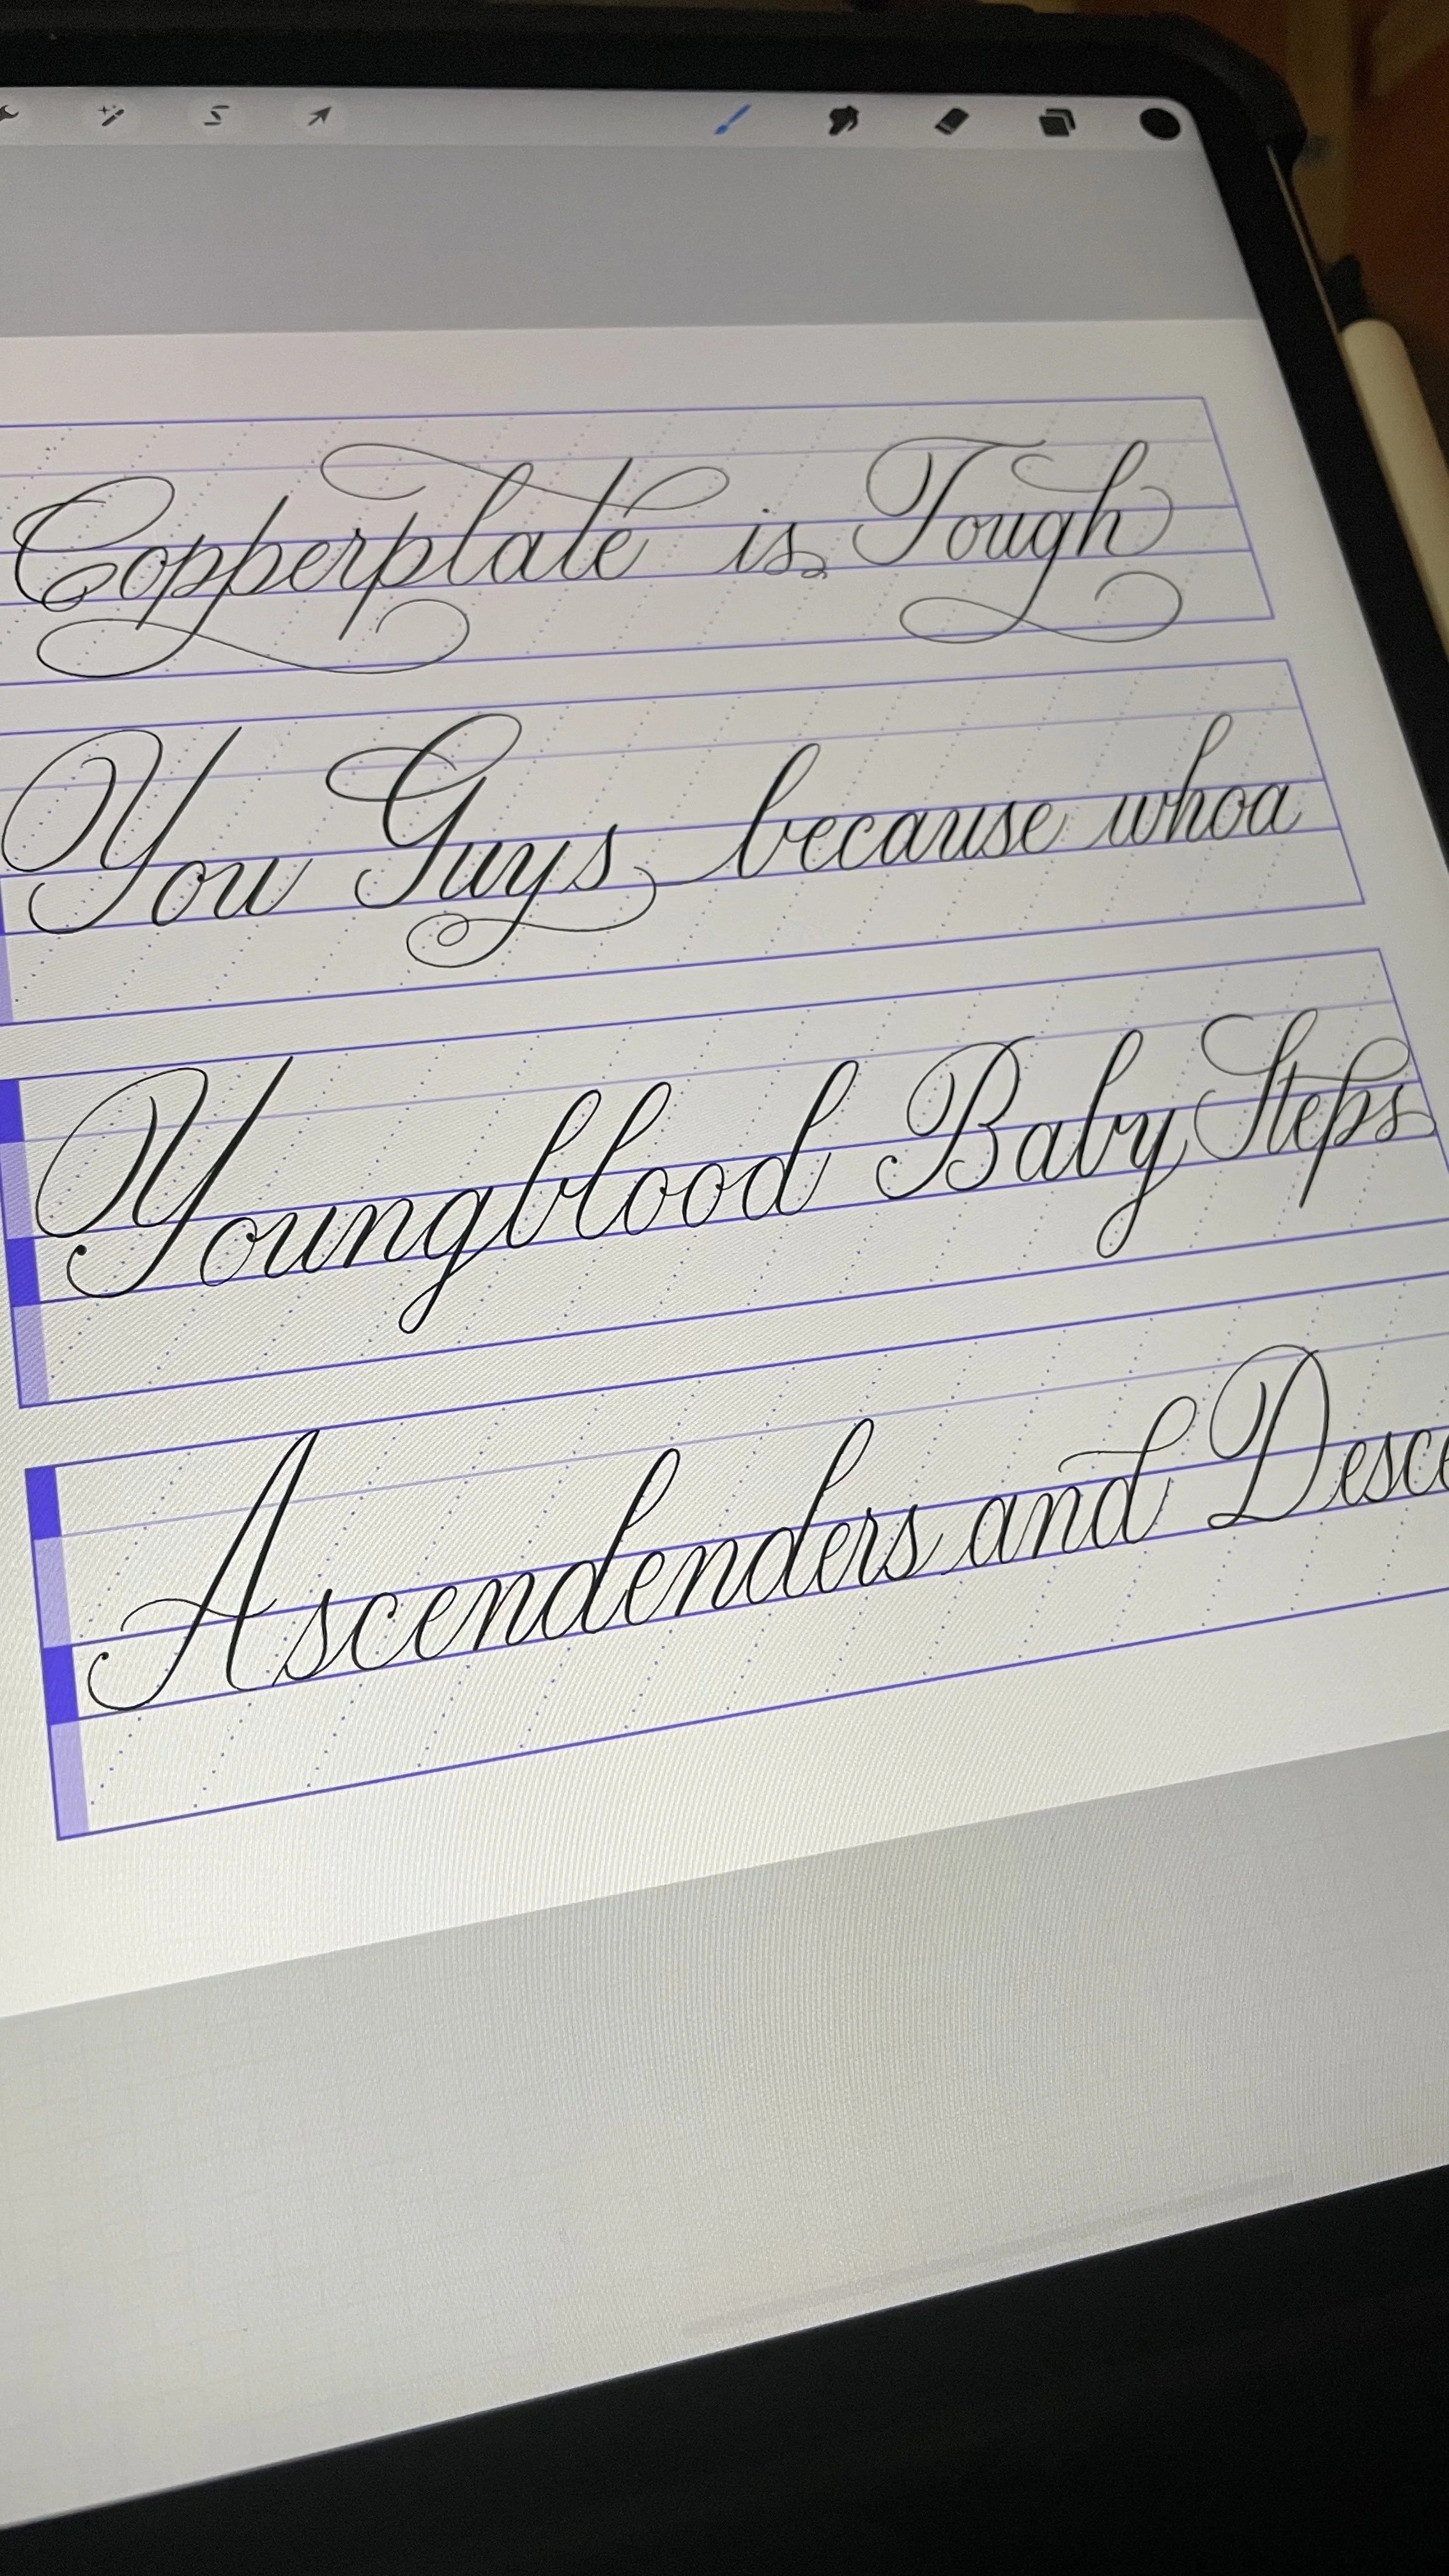 Copperplate is Tough
You Guys because whoa
Youngblood Baby Steps
Ascendenders and Desce